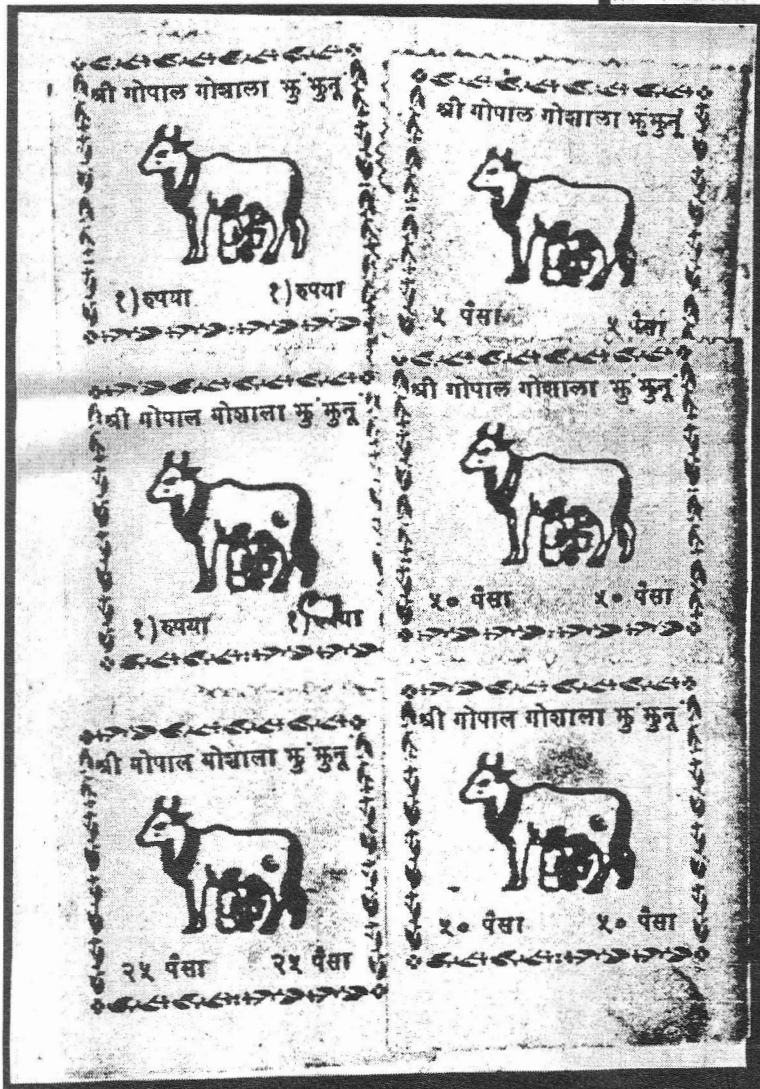 श्री गोपाल गोशाला झुंझुनूं
१)रुपया १)रुपया
श्री गोपाल गोशाला झुंझुनूं
५ पैसा ५ पैसा
श्री गोपाल गोशाला झुंझुनूं
१)रुपया १)रुपया
श्री गोपाल गोशाला झुंझुनूं
५० पैसा ५० पैसा
श्री गोपाल गोशाला झुंझुनूं
२५ पैसा २५ पैसा
श्री गोपाल गोशाला झुंझुनूं
५० पैसा ५० पैसा